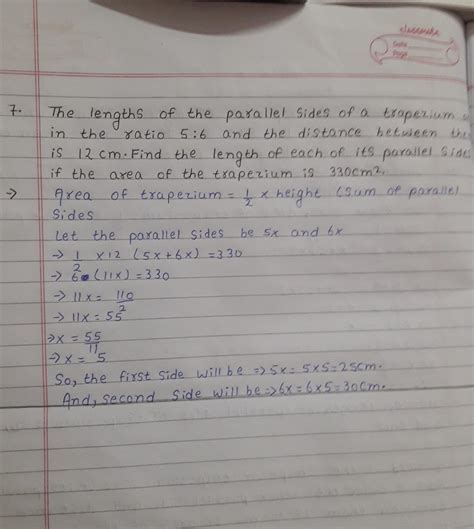 classmate
Date
Page
7. The lengths of the parallel sides of a trapezium
in the ratio 5:6 and the distance between the
is 12 cm. Find the length of each of its parallel side
if the area of the trapezium is 330cm2.
→ Area of trapezium = 1/2 × height (Sum of parallel
Sides
Let the parallel sides be 5x and 6x
→ 1/2 ×12 (5x+6x) = 330
→ 6 (11x) = 330
→ 11x = 110/2
→ 11x = 55
→ x = 55/11
→ x = 5
So, the first side will be ⇒ 5x = 5×5 = 25cm.
And, second side will be ⇒ 6x = 6×5 = 30cm.